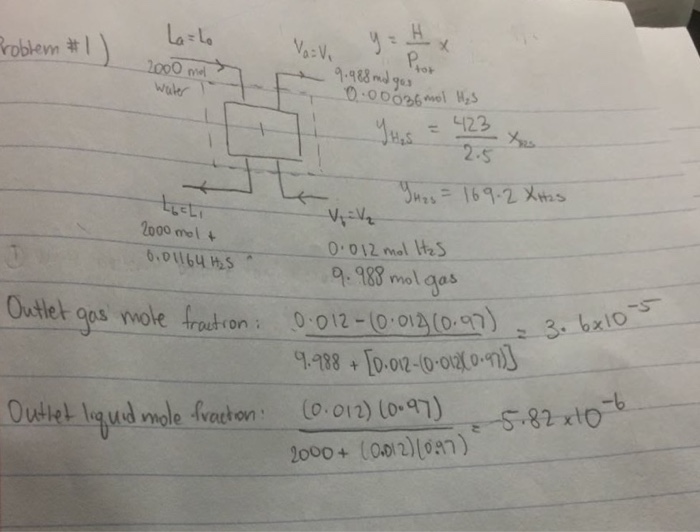 Problem #1)
La = Lo
2000 mol
water
Va = V1
9.988 mol gas
0.00036 mol H2S
y = H/Ptot x
yH2S = 423/2.5 xH2S
yH2S = 169.2 xH2S
Lb = L1
2000 mol +
0.01164 H2S
V1 = V2
0.012 mol H2S
9.988 mol gas
1
Outlet gas mole fraction: 0.012 - (0.012)(0.97) / 9.988 + [0.012 - (0.012)(0.97)] = 3.6 x 10^-5
Outlet liquid mole fraction: (0.012)(0.97) / 2000 + (0.012)(0.97) = 5.82 x 10^-6